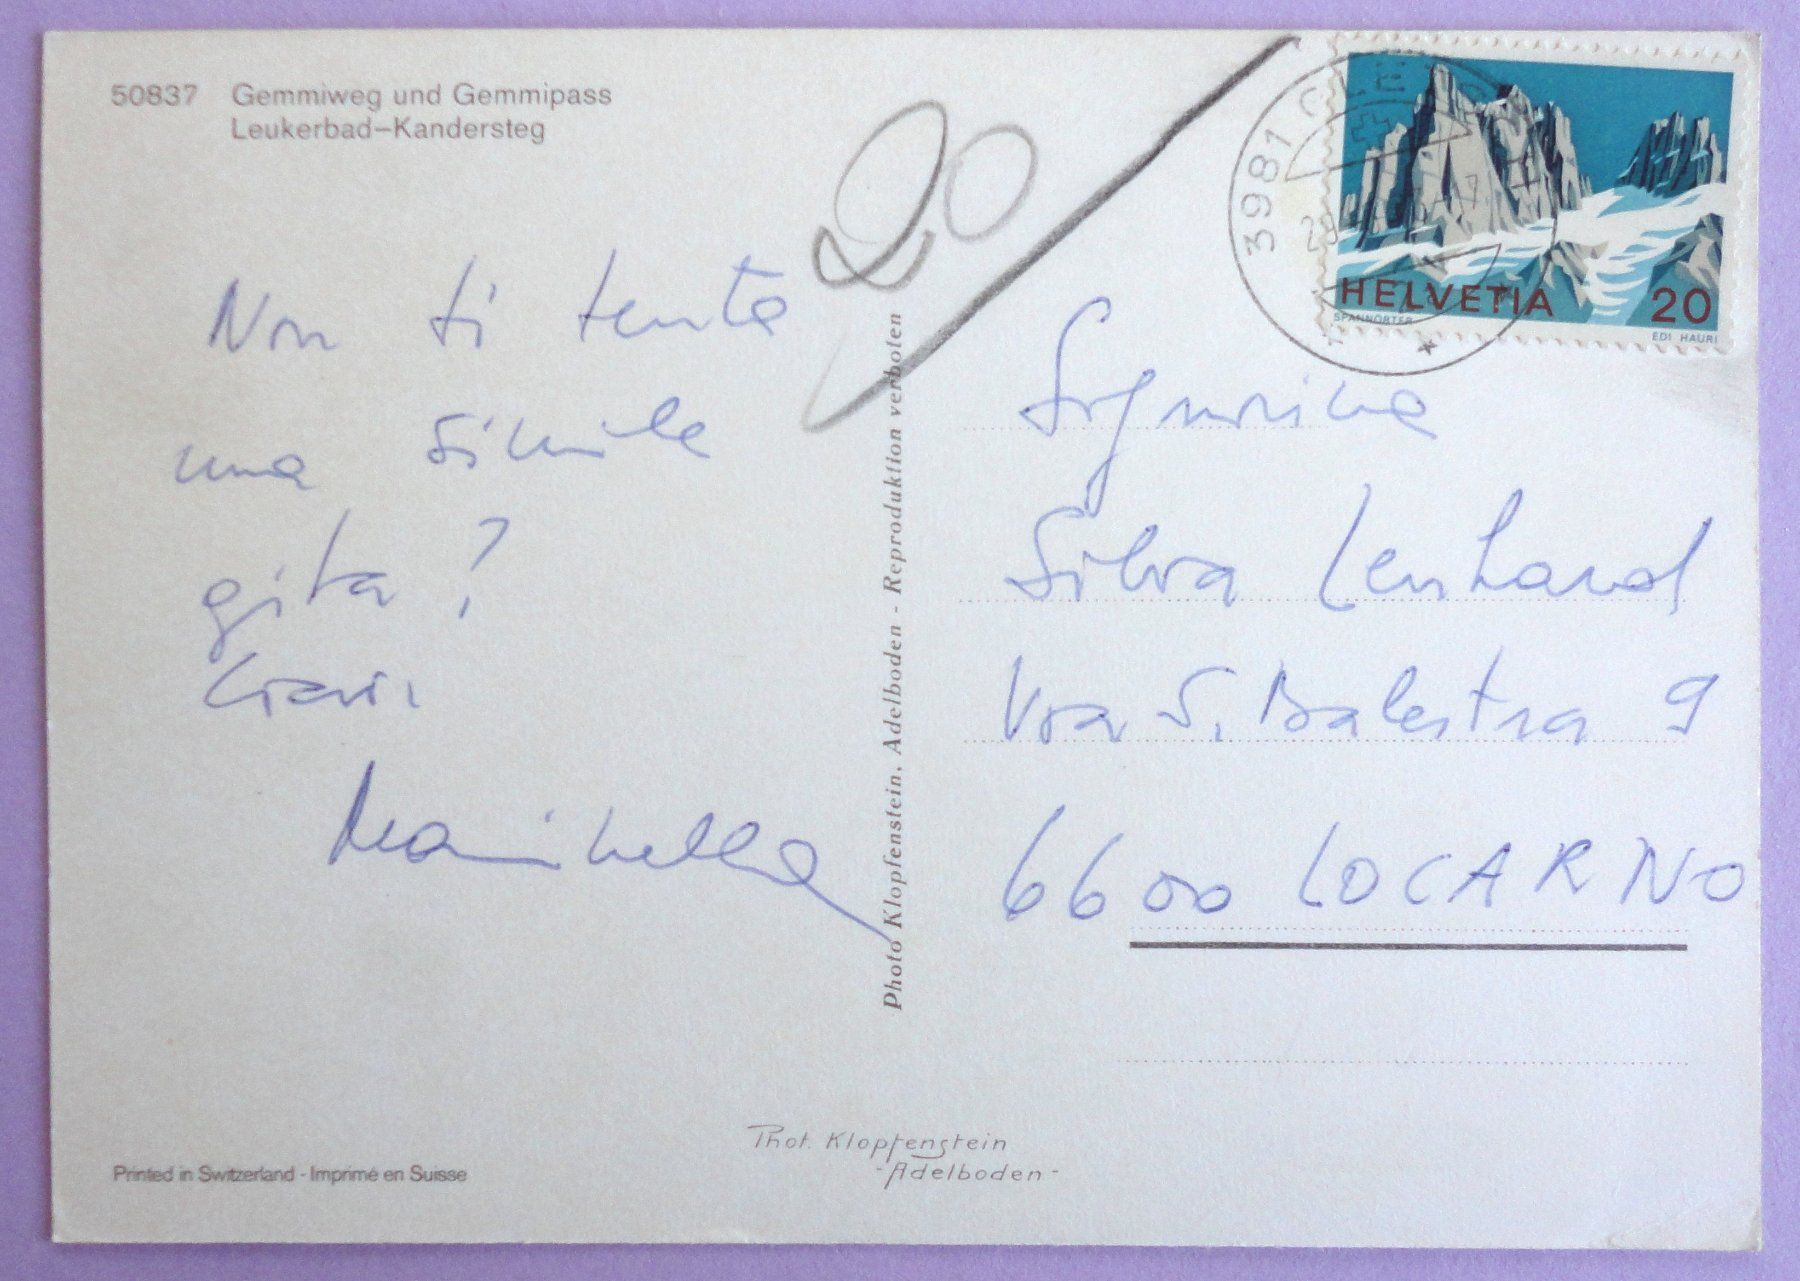 50837 Gemmiweg und Gemmipass
Leukerbad–Kandersteg
20
Non ti tenta
una simile
gita?
Ciao.
Photo Klopfenstein, Adelboden - Reproduktion verboten
3981
HELVETIA 20
SPANNÖRTER
EDI HAURI
Signorina
Silvia Lenhard
Via S. Balestra 9
6600 LOCARNO
Phot. Klopfenstein
-Adelboden-
Printed in Switzerland - Imprimé en Suisse